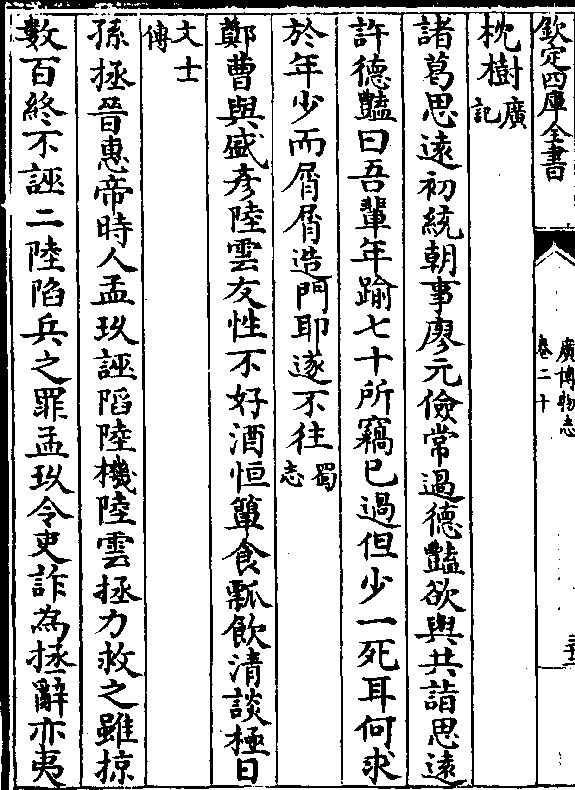 欽定四庫全書
廣博物志
卷二十
枕樹廣記
諸葛思遠初統朝事廖元儉常過德豔欲與共詣思遠
許德豔曰吾輩年踰七十所竊已過但少一死耳何求
於年少而屑屑造門耶遂不往蜀志
鄭曹與盛彥陸雲友性不好酒恒簞食瓢飲清談極日
文士傳
孫拯晉惠帝時人孟玖誣陷陸機陸雲拯力救之雖掠
數百終不誣二陸陷兵之罪孟玖令吏詐為拯辭亦夷